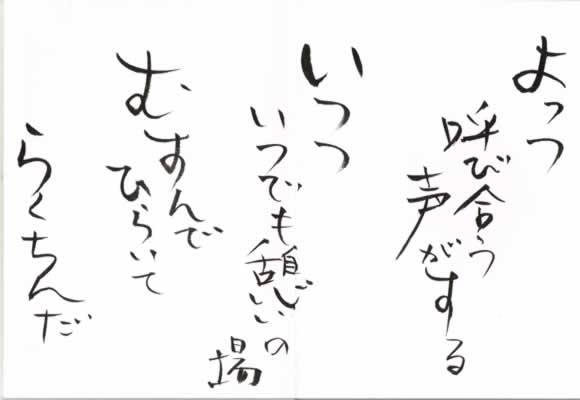 よっつ
呼び合う
声がする
いつつ
いつでも憩いの
場
むすんで
ひらいて
らくちんだ